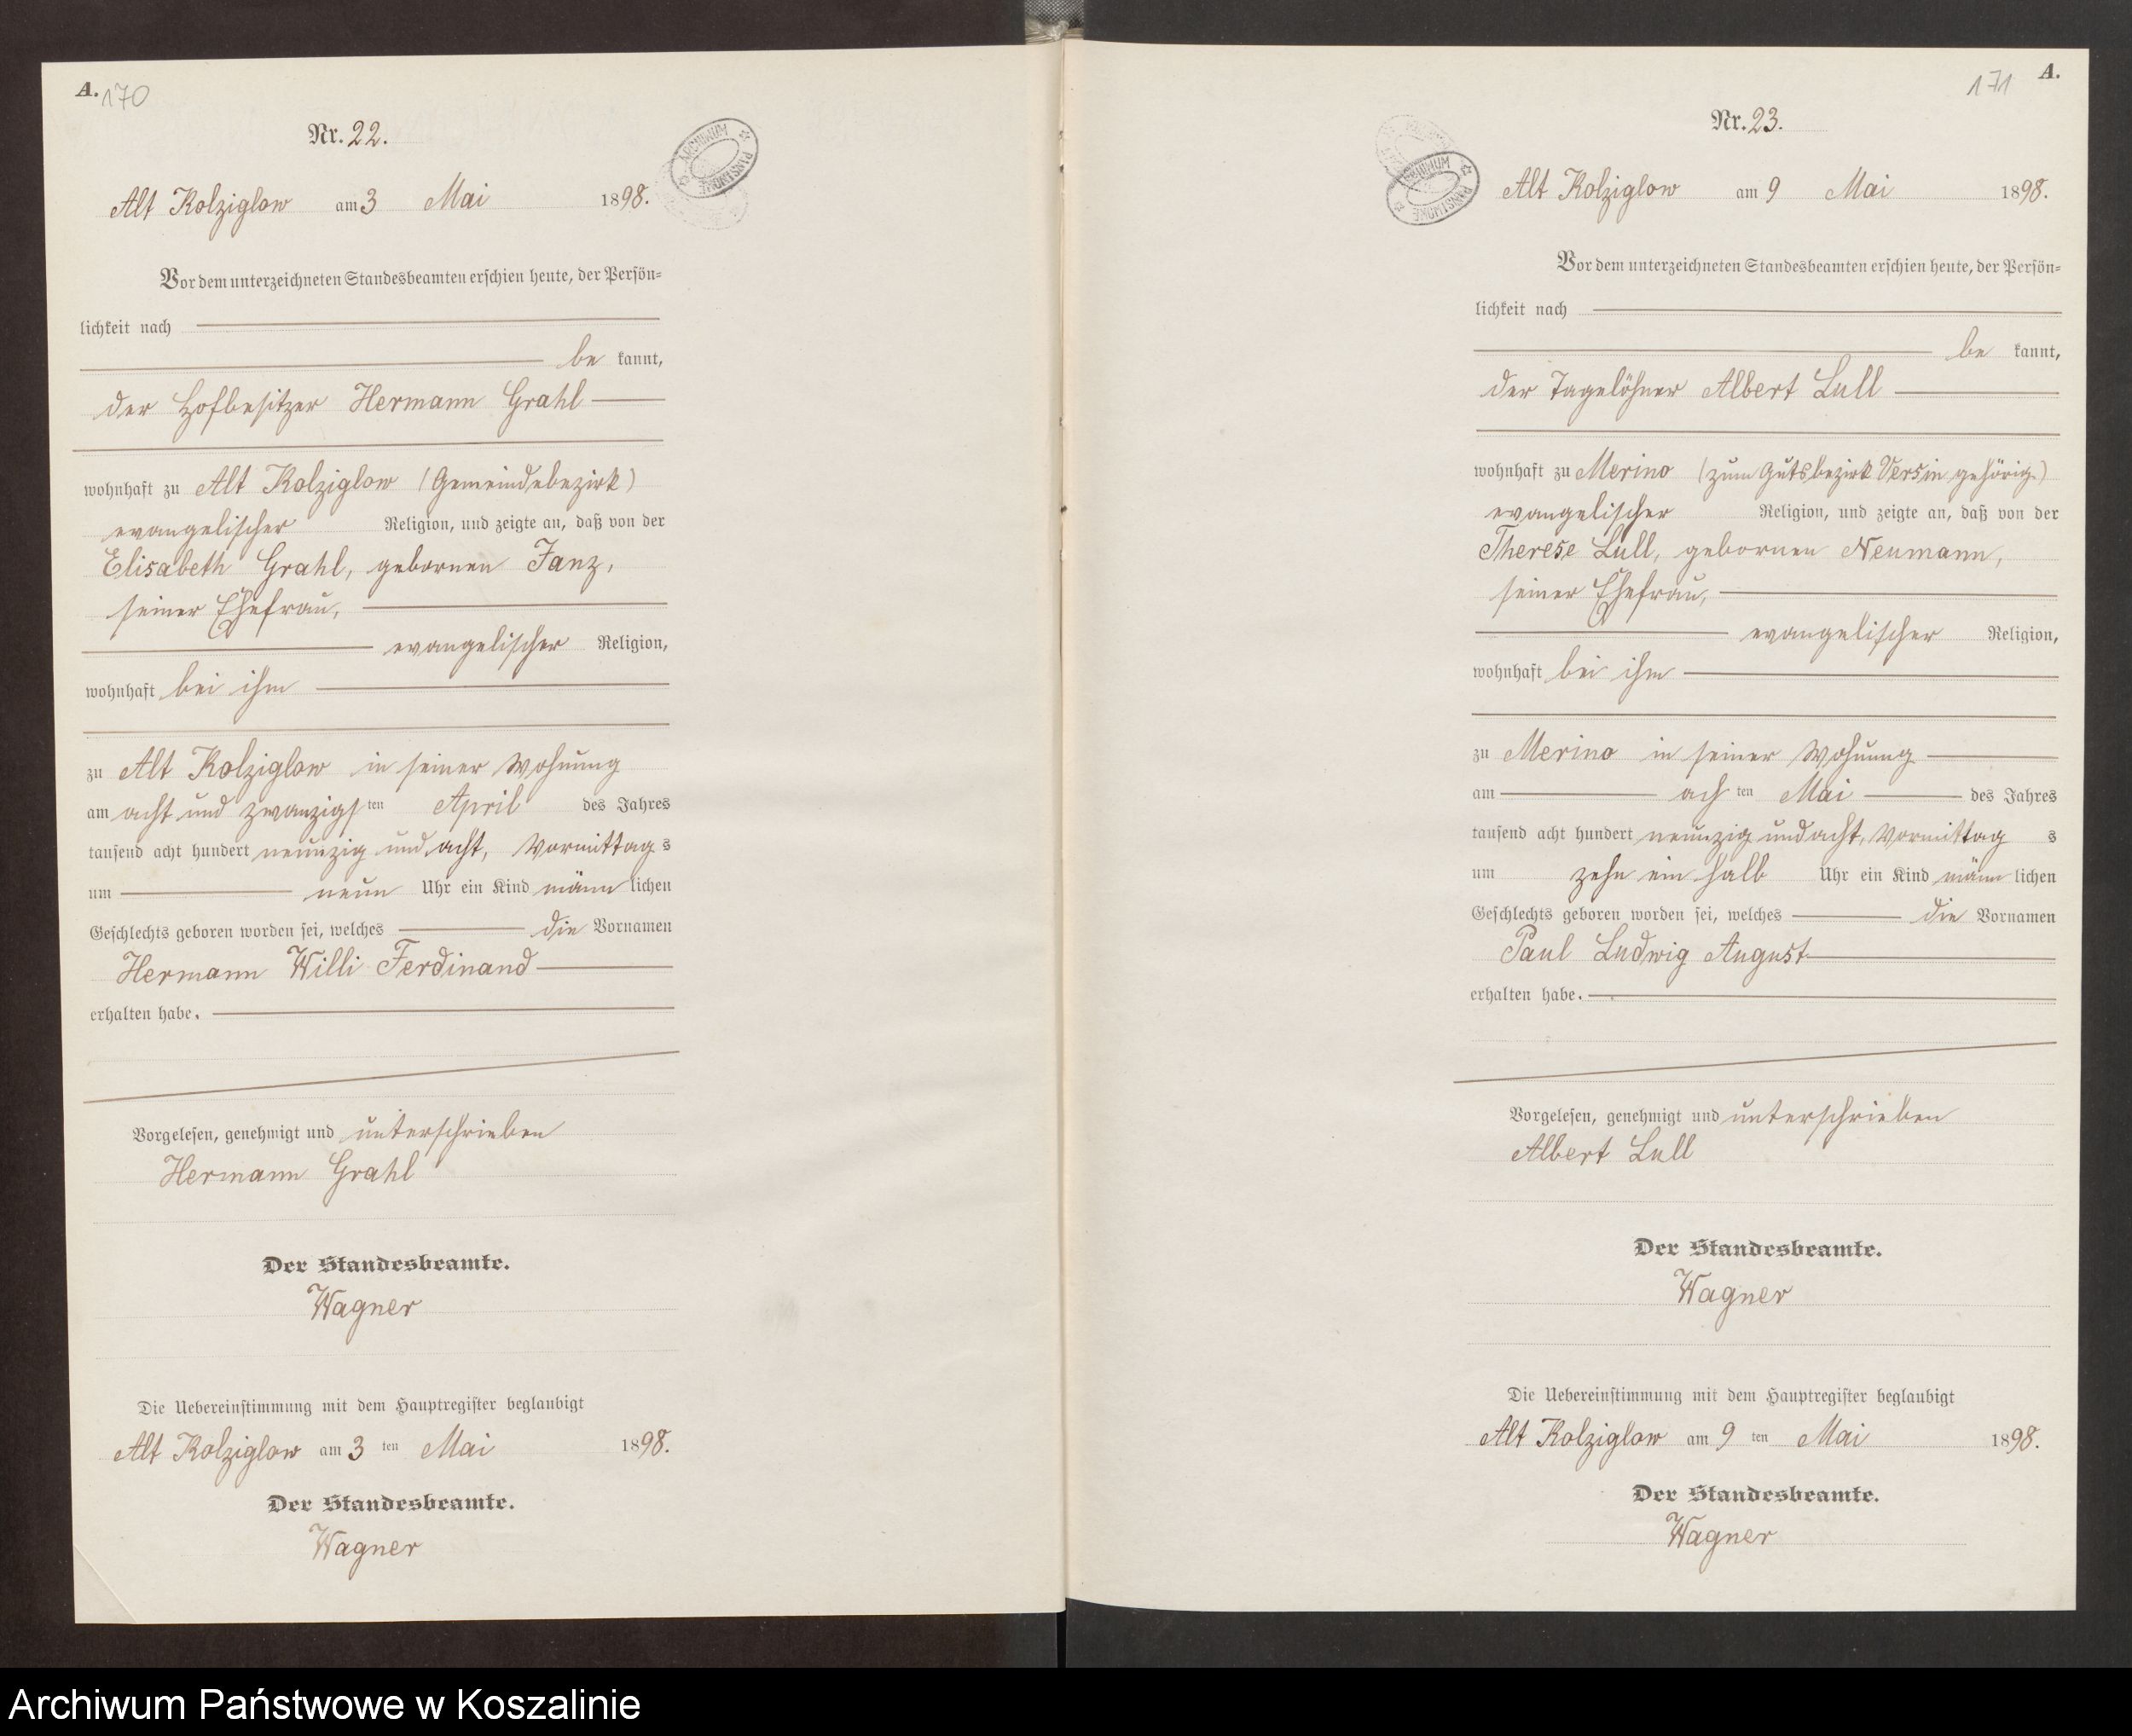 A. 170
Nr. 22.
Alt Kolziglow am 3 Mai 1898.
ARCHIWUM PAŃSTWOWE
Vor dem unterzeichneten Standesbeamten erschien heute, der Persön-
lichkeit nach
be kannt,
der Hofbesitzer Hermann Grahl
wohnhaft zu Alt Kolziglow (Gemeindebezirk)
evangelischer Religion, und zeigte an, daß von der
Elisabeth Grahl, gebornen Janz,
seiner Ehefrau,
evangelischer Religion,
wohnhaft bei ihm
zu Alt Kolziglow in seiner Wohnung
am acht und zwanzigs ten April des Jahres
tausend acht hundert neunzig und acht, Vormittag s
um neun Uhr ein Kind männ lichen
Geschlechts geboren worden sei, welches die Vornamen
Hermann Willi Ferdinand
erhalten habe.
Vorgelesen, genehmigt und unterschrieben
Hermann Grahl
Der Standesbeamte.
Wagner
Die Uebereinstimmung mit dem Hauptregister beglaubigt
Alt Kolziglow am 3 ten Mai 1898.
Der Standesbeamte.
Wagner
171 A.
Nr. 23.
ARCHIWUM PAŃSTWOWE
Alt Kolziglow am 9 Mai 1898.
Vor dem unterzeichneten Standesbeamten erschien heute, der Persön-
lichkeit nach
be kannt,
der Tagelöhner Albert Lull
wohnhaft zu Merino (zum Gutsbezirk Versin gehörig)
evangelischer Religion, und zeigte an, daß von der
Therese Lull, gebornen Neumann,
seiner Ehefrau,
evangelischer Religion,
wohnhaft bei ihm
zu Merino in seiner Wohnung
am ach ten Mai des Jahres
tausend acht hundert neunzig und acht, Vormittag s
um zehn ein halb Uhr ein Kind männ lichen
Geschlechts geboren worden sei, welches die Vornamen
Paul Ludwig August
erhalten habe.
Vorgelesen, genehmigt und unterschrieben
Albert Lull
Der Standesbeamte.
Wagner
Die Uebereinstimmung mit dem Hauptregister beglaubigt
Alt Kolziglow am 9 ten Mai 1898.
Der Standesbeamte.
Wagner
Archiwum Państwowe w Koszalinie